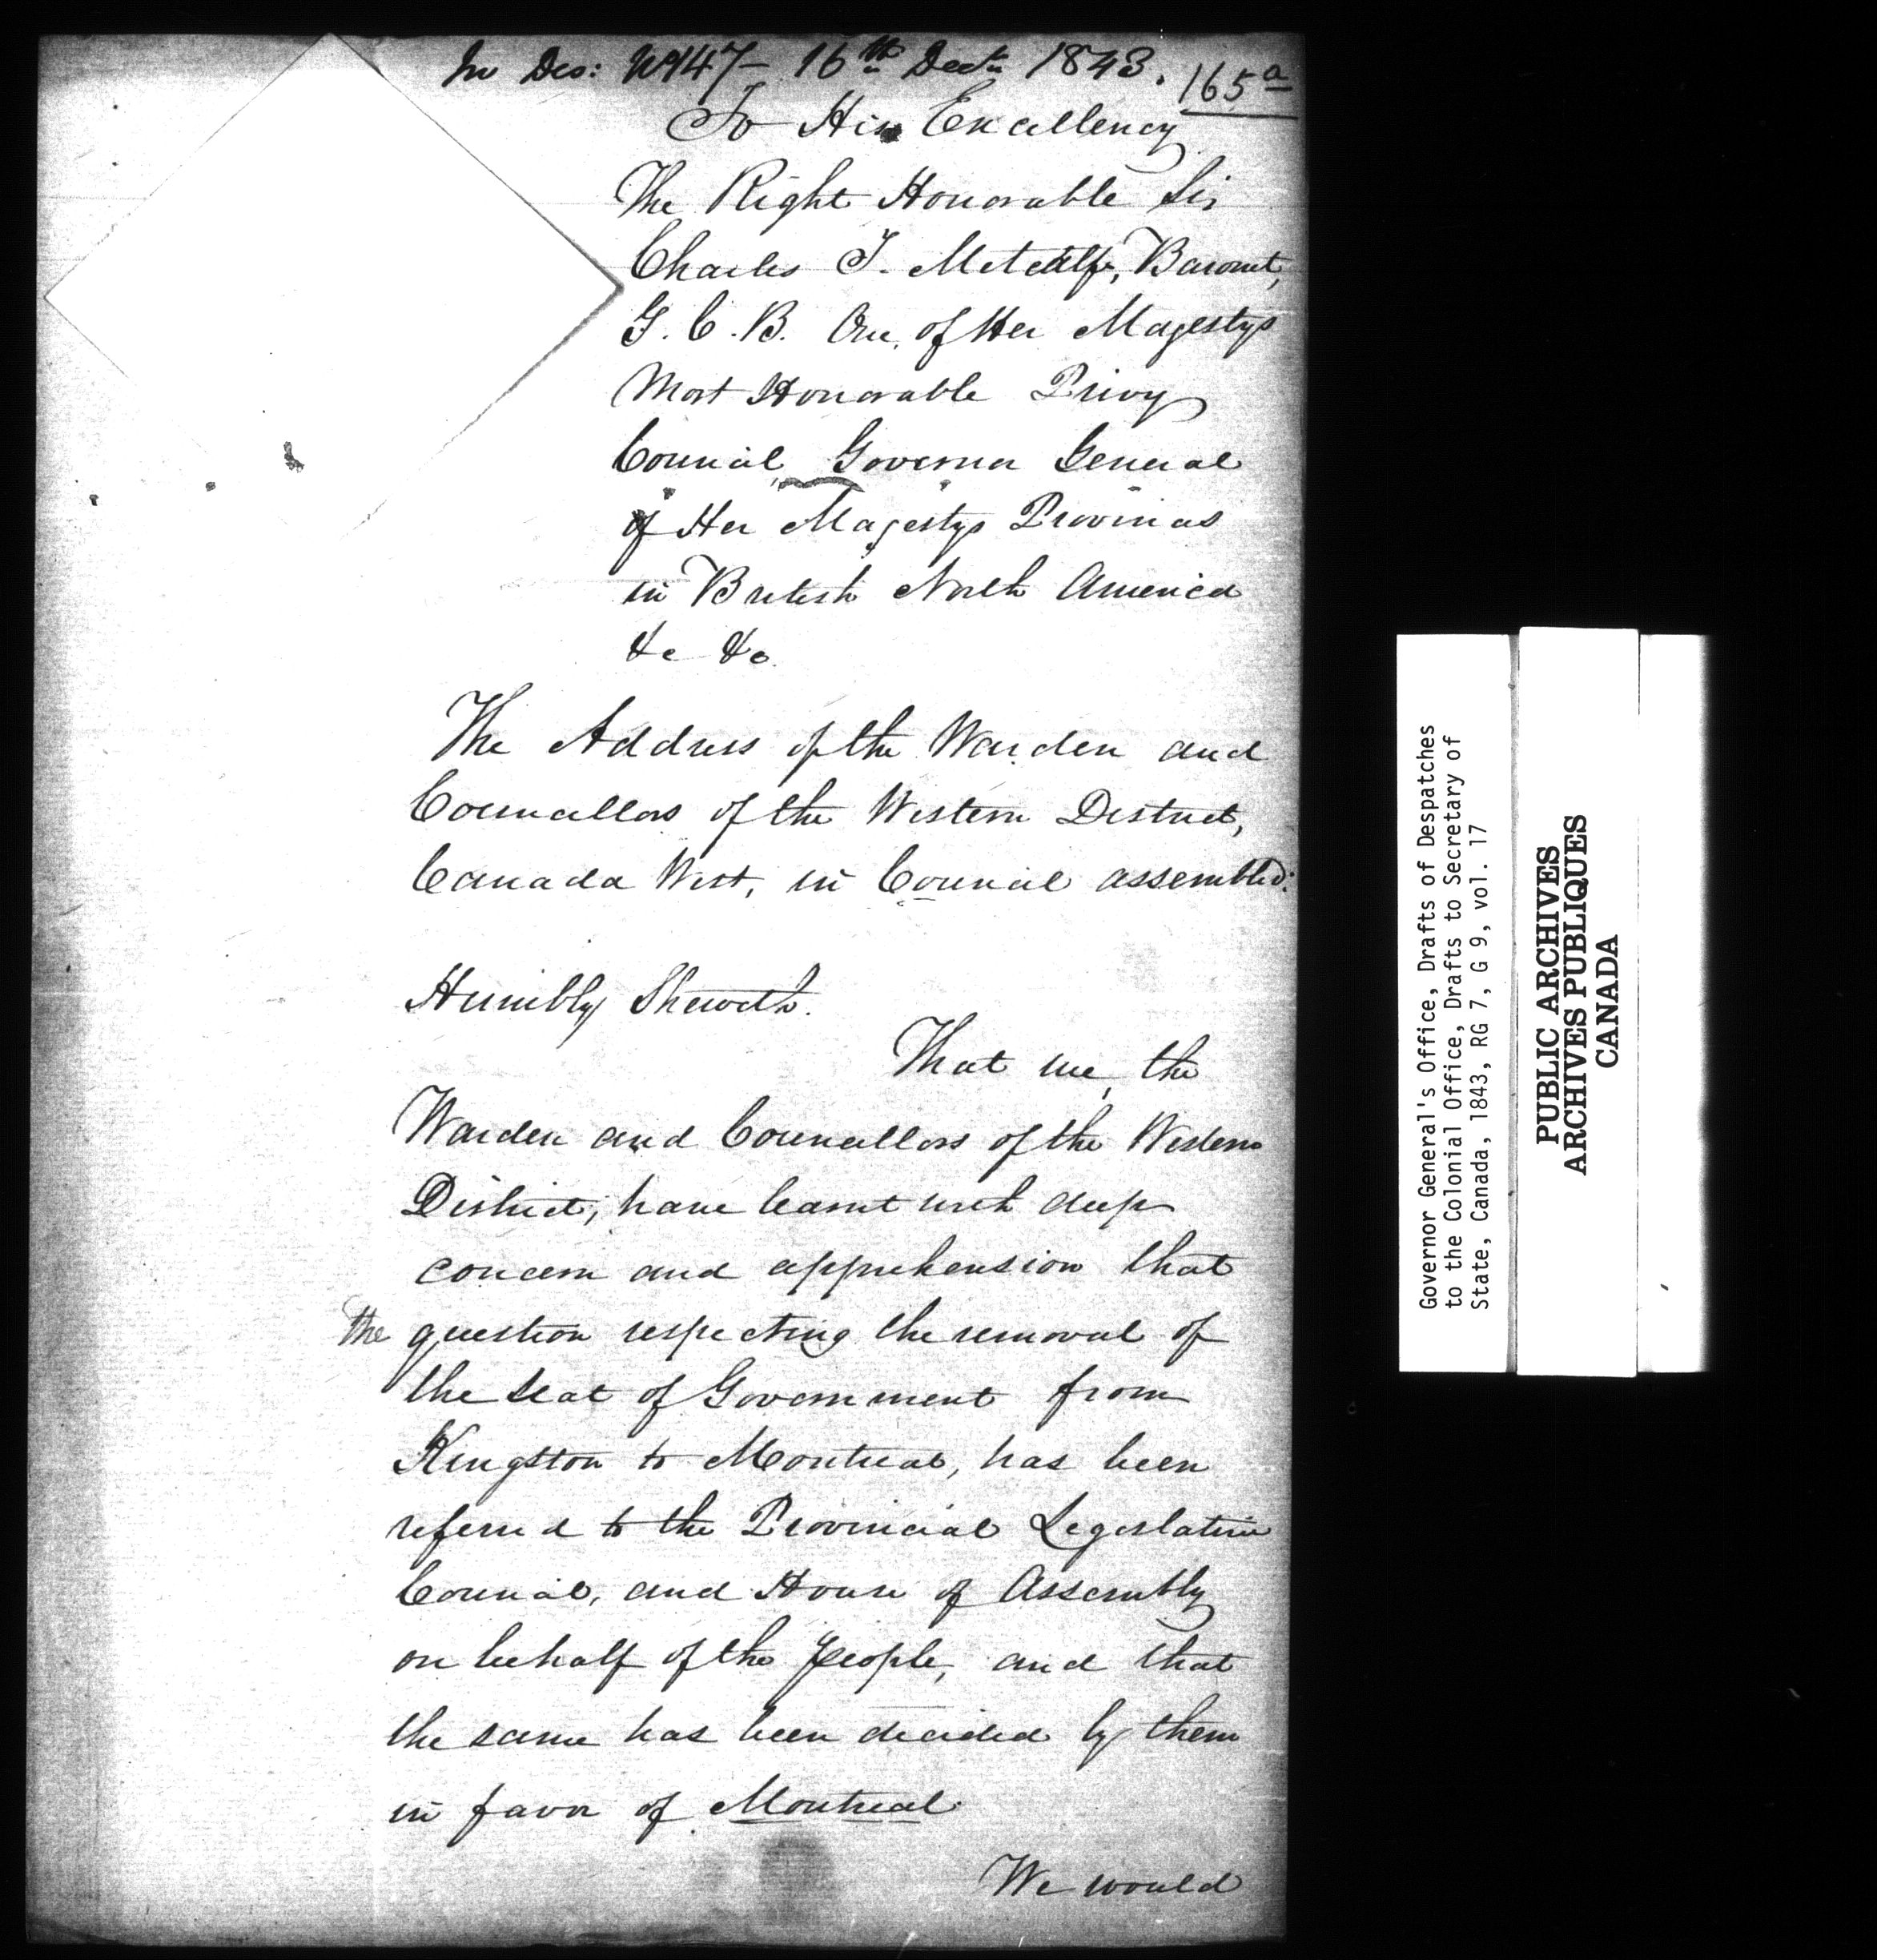 In Des: No 147 - 16th Decr 1843. 165a
To His Excellency
The Right Honorable Sir
Charles T. Metcalfe, Baronet,
G. C. B. One of Her Magestys
Most Honorable Privy
Council, Governor General
of Her Magestys Provinces
in British North America
&c &c.
The Address of the Warden and
Councillors of the Western District,
Canada West, in Council assembled:
Humbly Sheweth.
That we, the
Warden and Councillors of the Western
District, have learnt with deep
concern and apprehension that
the question respecting the removal of
the Seat of Government from
Kingston to Montreal, has been
referred to the Provincial Legislative
Council, and House of Assembly
on behalf of the People, and that
the same has been decided by them
in favor of Montreal.
We would
Governor General's Office, Drafts of Despatches
to the Colonial Office, Drafts to Secretary of
State, Canada, 1843, RG 7, G 9, vol. 17
PUBLIC ARCHIVES
ARCHIVES PUBLIQUES
CANADA